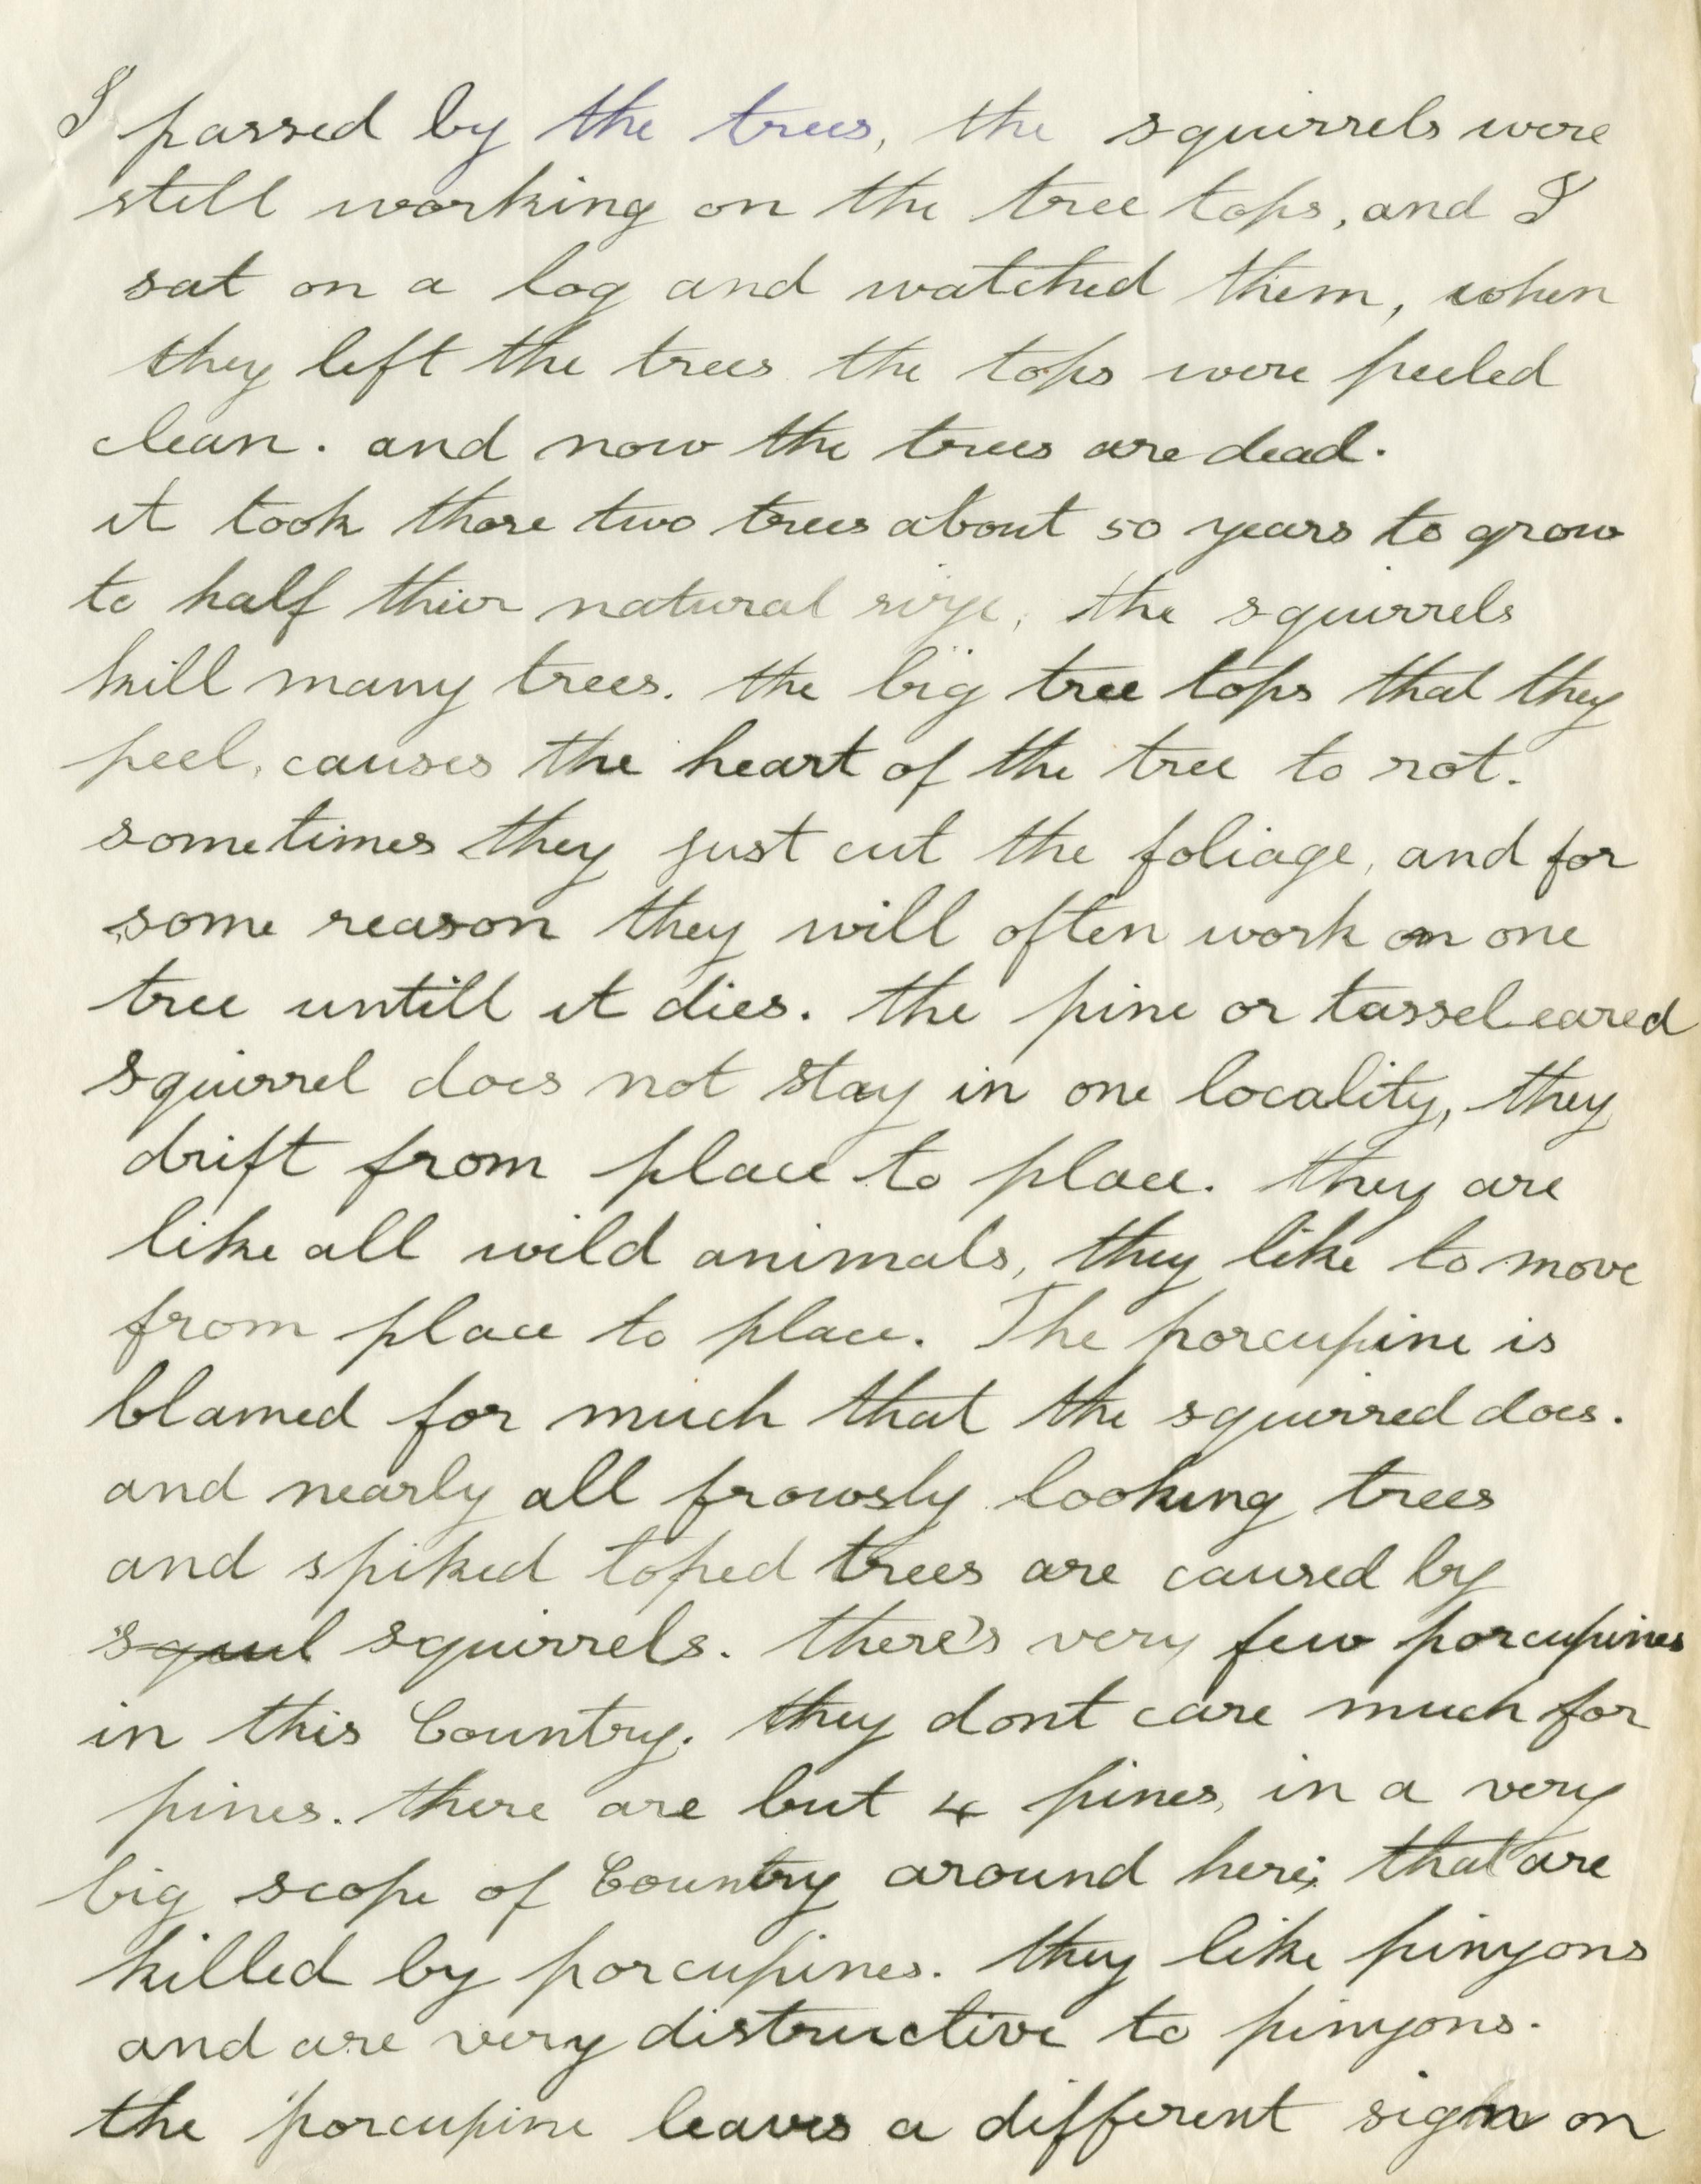 I passed by the trees, the squirrels were
still working on the tree tops, and I
sat on a log and watched them, when
they left the trees the tops were peeled
clean. and now the trees are dead.
it took those two trees about 50 years to grow
to half thier natural size, the squirrels
kill many trees. the big tree tops that they
peel, causes the heart of the tree to rot.
sometimes they just cut the foliage, and for
some reason they will often work on one
tree untill it dies. the pine or tassel eared
squirrel does not stay in one locality, they
drift from place to place. they are
like all wild animals, they like to move
from place to place. The porcupine is
blamed for much that the squirred does.
and nearly all frowsly looking trees
and spiked toped trees are caused by
squul squirrels. there's very few porcupines
in this Country. they dont care much for
pines. there are but 4 pines, in a very
big scope of Country around here, that are
killed by porcupines. they like pinyons
and are very distructive to pinyons.
the porcupine leaves a different sign on